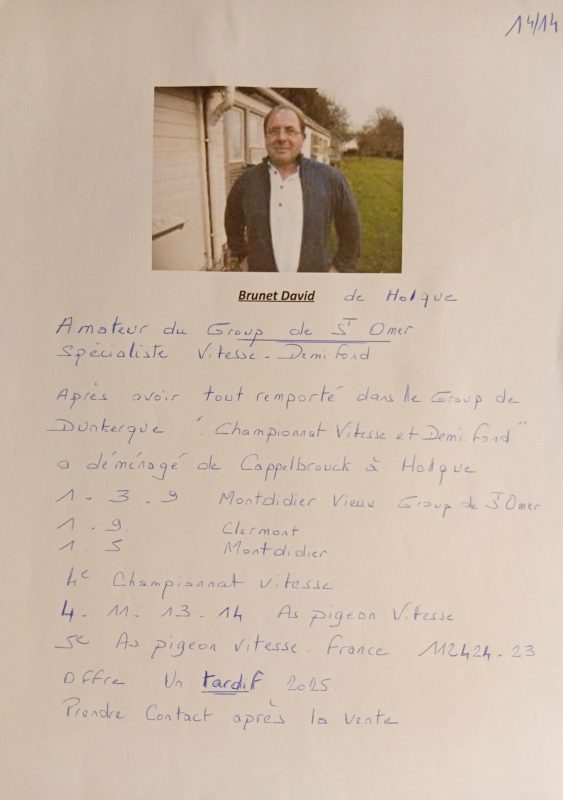 14/14
Brunet David de Holque
Amateur du Group de St Omer
Spécialiste Vitesse - Demi Fond
Après avoir tout remporté dans le Group de
Dunkerque "Championnat Vitesse et Demi Fond"
a déménagé de Cappelbrouck à Holque
1 - 3 - 9 Montdidier Vieux Group de St Omer
1 - 9 Clermont
1 - 5 Montdidier
4e Championnat vitesse
4 - 11 - 13 - 14 As pigeon Vitesse
5e As pigeon vitesse - France 112424-23
Offre Un tardif 2025
Prendre Contact après la vente